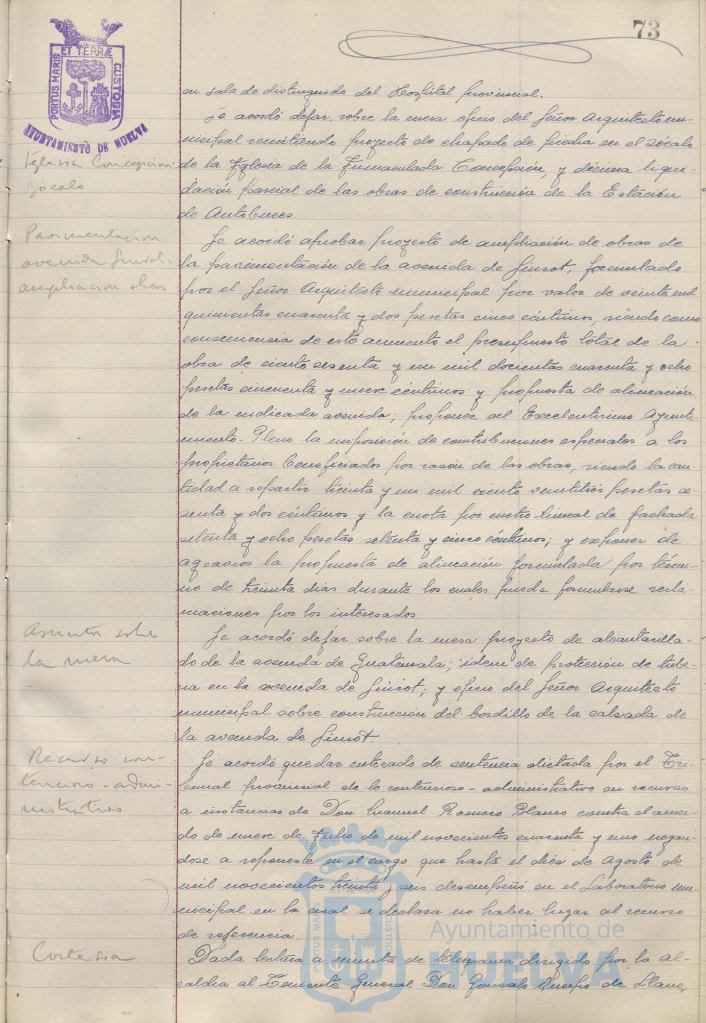 73
PORTUS MARIS ET TERRAE CUSTODIA
AYUNTAMIENTO DE HUELVA
en sala de distinguido del Hospital provincial.
Se acordó dejar sobre la mesa oficio del Señor Arquitecto mu-
nicipal remitiendo proyecto de chapado de piedra en el zócalo
Iglesia Concepción
de la Iglesia de la Inmaculada Concepción, y décima liqui-
zócalo
dación parcial de las obras de construcción de la Estación
de Autobuses
Pavimentacion
Se acordó aprobar proyecto de ampliación de obras de
avenida Guirot.
la pavimentación de la avenida de Guirot, formulado
ampliacion obras
por el Señor Arquitecto municipal por valor de veinte mil
quinientas cuarenta y dos pesetas cinco céntimos, siendo como
consecuencia de este aumento el presupuesto total de la
obra de ciento sesenta y un mil docientas cuarenta y ocho
pesetas cincuenta y nueve céntimos y propuesta de alineación
de la indicada avenida; proponer al Excelentísimo Ayunta-
miento-Pleno la imposición de contribuciones especiales a los
propietarios beneficiados por razón de las obras, siendo la can-
tidad a repartir treinta y un mil ciento veintitrés pesetas se-
senta y dos céntimos y la cuota por metro lineal de fachada
setenta y ocho pesetas setenta y cinco céntimos; y exponer de
agravios la propuesta de alineación formulada por térmi-
no de treinta dias durante los cuales puede formularse recla-
maciones por los interesados
Asuntos sobre
la mesa
Se acordó dejar sobre la mesa proyecto de alcantarilla-
do de la avenida de Guatemala; idem de protección de tube-
ria en la avenida de Guirot; y oficio del Señor Arquitecto
municipal sobre construcción del bordillo de la calzada de
la avenida de Guirot.
Recurso con-
tencioso-admi-
nistrativo
Se acordó quedar enterado de sentencia dictada por el Tri-
bunal provincial de lo contencioso-administrativo en recurso
a instancias de Don Manuel Romero Blanco contra el acuer-
do de nueve de Julio de mil novecientos cuarenta y uno negan-
dose a reponerle en el cargo que hasta el diez de Agosto de
mil novecientos treinta y seis desempeñó en el Laboratorio mu-
nicipal en la cual se declara no haber lugar al recurso
de referencia.
Cortesia
Dada lectura a minuta de telegrama dirigido por la Al-
caldia al Teniente General Don Gonzalo Queipo de Llano,
Ayuntamiento de
HUELVA